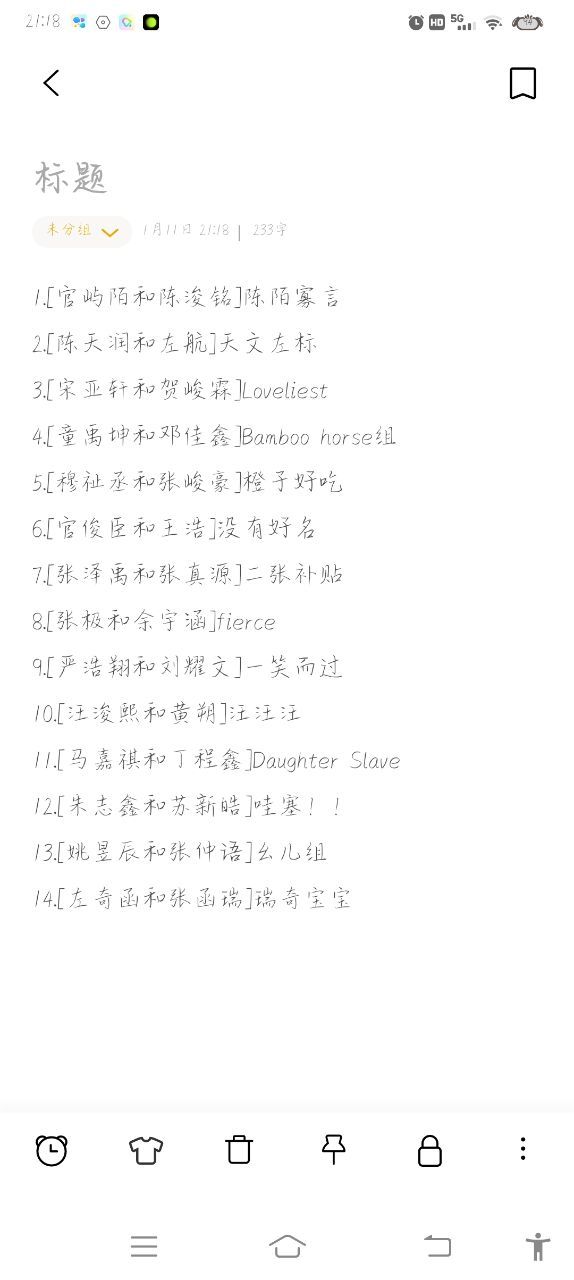 21:18 HD 5G 94
标题
未分组 1月11日 21:18 | 233字
1.[官屿陌和陈浚铭]陈陌寡言
2.[陈天润和左航]天文左标
3.[宋亚轩和贺峻霖]Loveliest
4.[童禹坤和邓佳鑫]Bamboo horse组
5.[穆祉丞和张峻豪]橙子好吃
6.[官俊臣和王浩]没有好名
7.[张泽禹和张真源]二张补贴
8.[张极和余宇涵]fierce
9.[严浩翔和刘耀文]一笑而过
10.[汪浚熙和黄朔]汪汪汪
11.[马嘉祺和丁程鑫]Daughter Slave
12.[朱志鑫和苏新皓]哇塞！！
13.[姚昱辰和张仲语]幺儿组
14.[左奇函和张函瑞]瑞奇宝宝